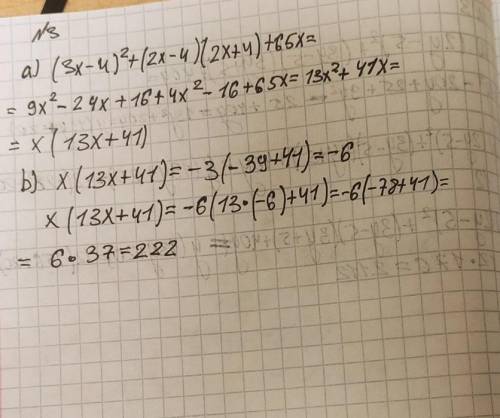 №3
a) (3x-4)²+(2x-4)(2x+4)+65x=
= 9x²-24x+16+4x²-16+65x=13x²+41x=
= x(13x+41)
b) x(13x+41)=-3(-39+41)=-6
x(13x+41)=-6(13•(-6)+41)=-6(-78+41)=
= 6•37=222 =